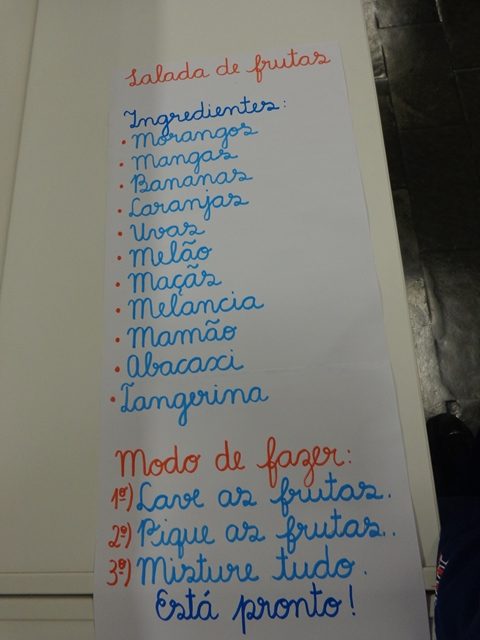 Salada de frutas
Ingredientes:
• Morangos
• Mangas
• Bananas
• Laranjas
• Uvas
• Melão
• Maçãs
• Melancia
• Mamão
• Abacaxi
• Tangerina
Modo de fazer:
1º) Lave as frutas.
2º) Pique as frutas..
3º) Misture tudo.
Está pronto!